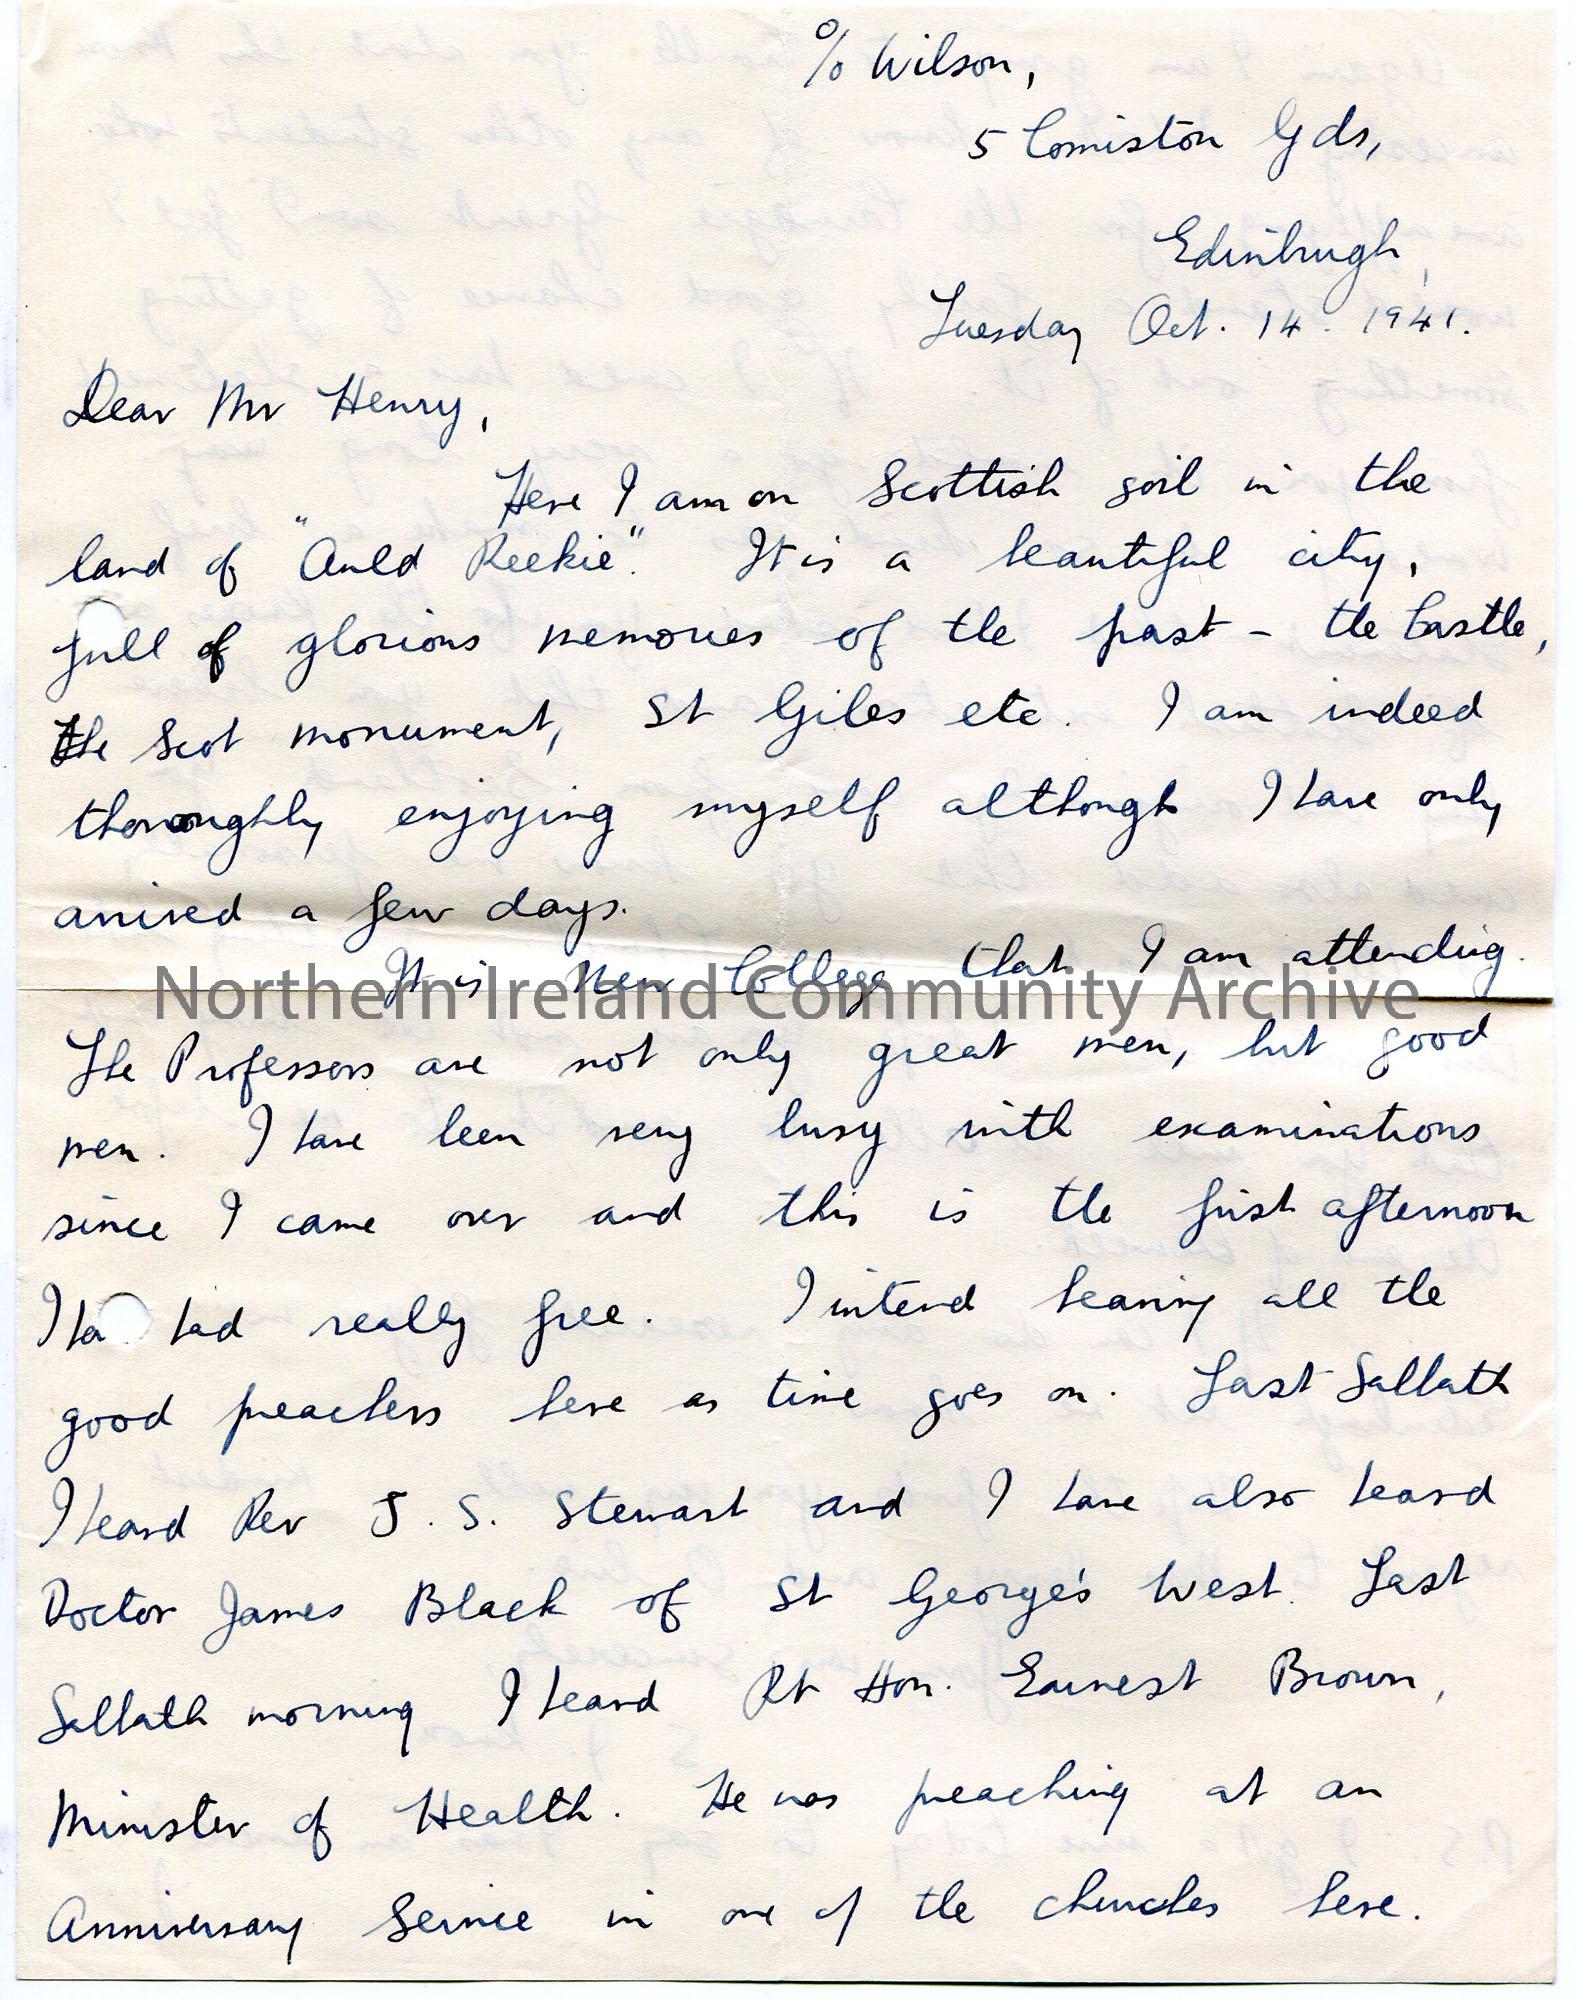 c/o Wilson,
5 Comiston Gds,
Edinburgh,
Tuesday Oct. 14. 1941.
Dear Mr Henry,
Here I am on Scottish soil in the
land of "Auld Reekie". It is a beautiful city,
full of glorious memories of the past - the Castle,
the Scot monument, St Giles etc. I am indeed
thoroughly enjoying myself although I have only
arrived a few days.
It is New College that I am attending.
Northern Ireland Community Archive
The Professors are not only great men, but good
men. I have been very busy with examinations
since I came over and this is the first afternoon
I ha had really free. I intend hearing all the
good preachers here as time goes on. Last Sabbath
I heard Rev J. S. Stewart and I have also heard
Doctor James Black of St George's West. Last
Sabbath morning I heard Rt Hon. Earnest Brown,
Minister of Health. He was preaching at an
Anniversary Service in one of the churches here.